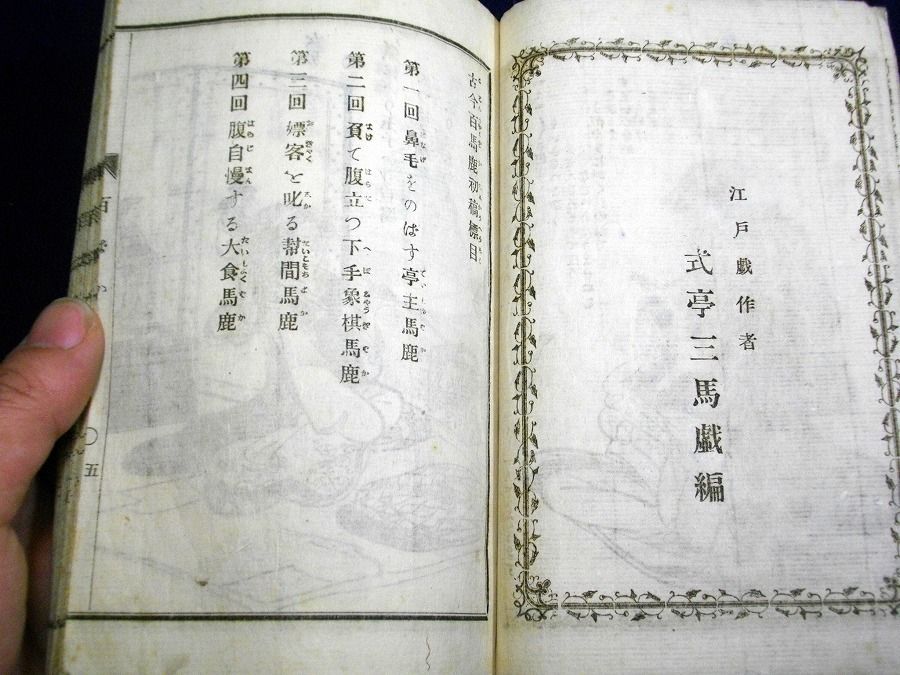 江戸戯作者
式亭三馬戯編
古今百馬鹿初稿標目
第一回 鼻毛をのばす亭主馬鹿
第二回 負て腹立つ下手象棋馬鹿
第三回 嫖客を叱る幇間馬鹿
第四回 腹自慢する大食馬鹿
五